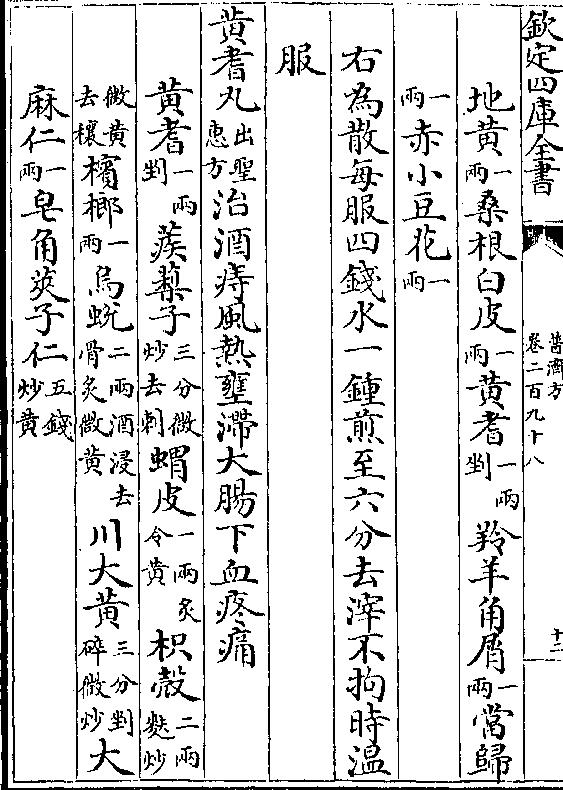 欽定四庫全書
普濟方
卷二百九十八
十二
地黄一兩桑根白皮一兩黄耆一兩剉羚羊角屑一兩當歸
一兩赤小豆花一兩
右為散每服四錢水一鍾煎至六分去滓不拘時温
服
黄耆丸出聖惠方治酒痔風熱壅滯大腸下血疼痛
黄耆一兩剉蒺藜子三分微炒去刺蝟皮一兩炙令黄枳殼二兩麩炒
微黄去穰檳榔一兩烏蛻二兩酒浸去骨炙微黄川大黄三分剉碎微炒大
麻仁一兩皂角莢子仁五錢炒黄